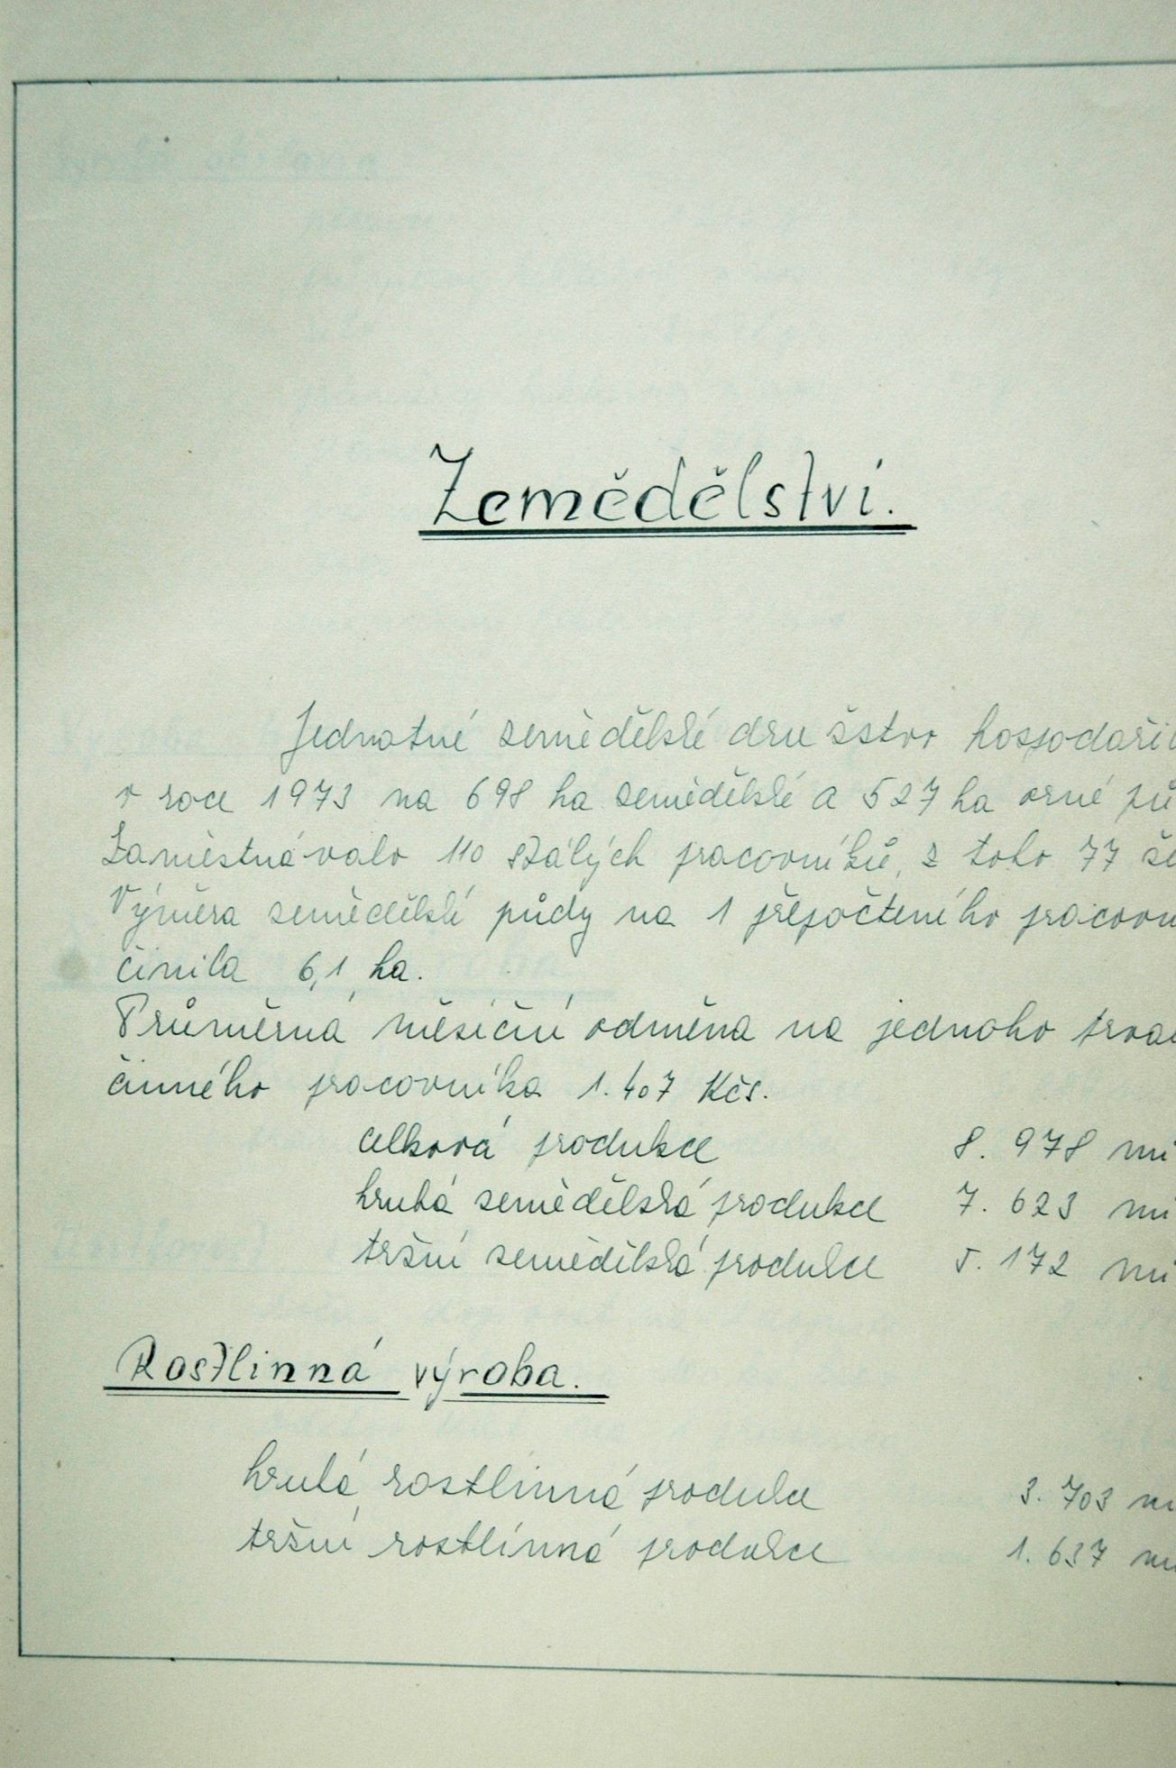 Zemědělství.
Jednotné zemědělské družstvo hospodaři
v roce 1973 na 698 ha zemědělské a 527 ha orné pů
Zaměstnávalo 110 stálých pracovníků, z toho 77 že
Výměra zemědělské půdy na 1 přepočteného pracovn
činila 6,1 ha.
Průměrná měsíční odměna na jednoho trva
činného pracovníka 1.407 Kčs.
celková produkce 8.978 mi
hrubá zemědělská produkce 7.623 mi
tržní zemědělská produkce 5.172 mi
Rostlinná výroba.
hrubá rostlinná produkce 3.703 mi
tržní rostlinná produkce 1.637 mi